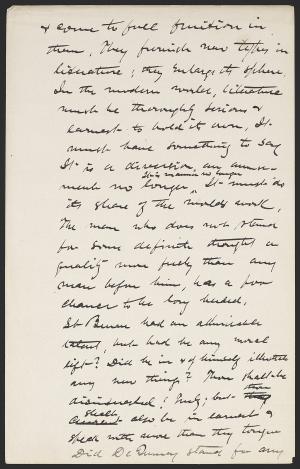 & come to full fruition in
them. They furnish new types in
literature; they enlarge its sphere.
In the modern world, literature
must be thoroughly serious &
earnest to hold its own. It
must have something to say
It is a diversion, an amuse-
ment no longer. It must do
its share of the world's work.
The man who does not stand
for some definite thought or
quality more fully than any
man before him, has a poor
chance to be long heeded.
St Beuve had an admirable
talent, but had he any moral
gift? Did he in & of himself illustrate
any new things? Thou shalt be
disinterested; truly; but thou
shalt also be in earnest &
speak with more than thy tongue
Did De Quincey stand for any